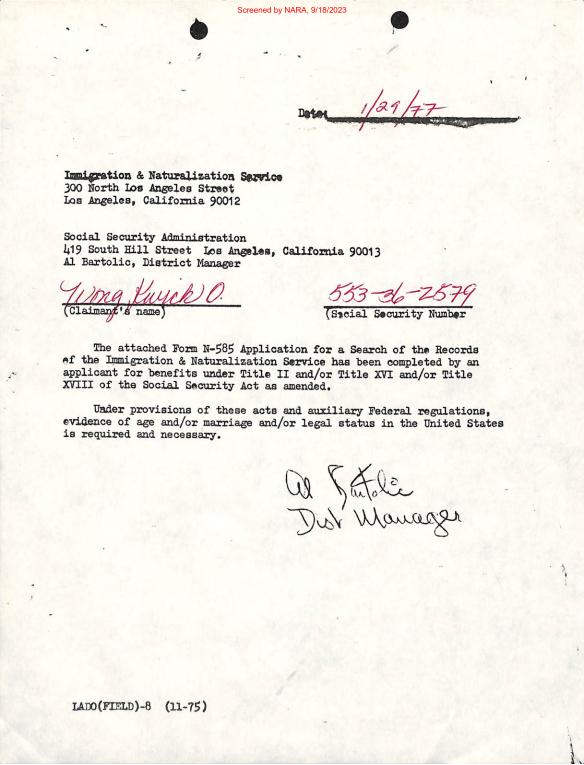 Screened by NARA, 9/18/2023
Date: 1/29/77
Immigration & Naturalization Service
300 North Los Angeles Street
Los Angeles, California 90012
Social Security Administration
419 South Hill Street Los Angeles, California 90013
Al Bartolic, District Manager
Wong Kwick O. 553-36-2579
(Claimant's name) (Social Security Number
The attached Form N-585 Application for a Search of the Records
of the Immigration & Naturalization Service has been completed by an
applicant for benefits under Title II and/or Title XVI and/or Title
XVIII of the Social Security Act as amended.
Under provisions of these acts and auxiliary Federal regulations,
evidence of age and/or marriage and/or legal status in the United States
is required and necessary.
Al Bartolic
Dist Manager
LADO(FIELD)-8 (11-75)